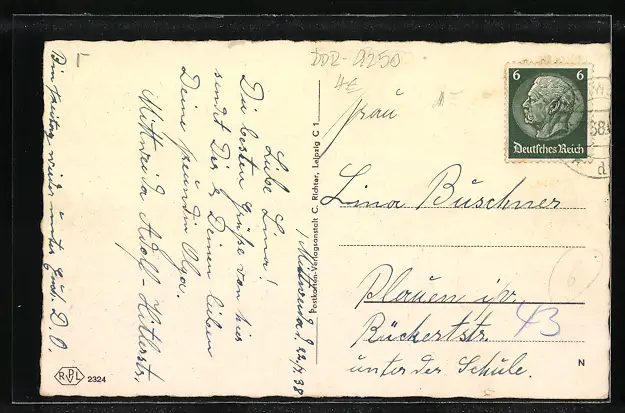 DDR-9250
4€
Mittweida, 22/7.38
Liebe Lina!
Die besten Grüße von hier
sendet Dir & Deinen lieben
Deine Freundin Olga.
Mittweida Adolf-Hitlerstr.
Bin freitag wieder unter D. O.
Postkarten-Verlagsanstalt C. Richter, Leipzig C 1
RVPL 2324
6 6
Deutsches Reich
Frau
Lina Büschner
Plauen i/v.
Rückertstr. 43
unter der Schule.
6
N